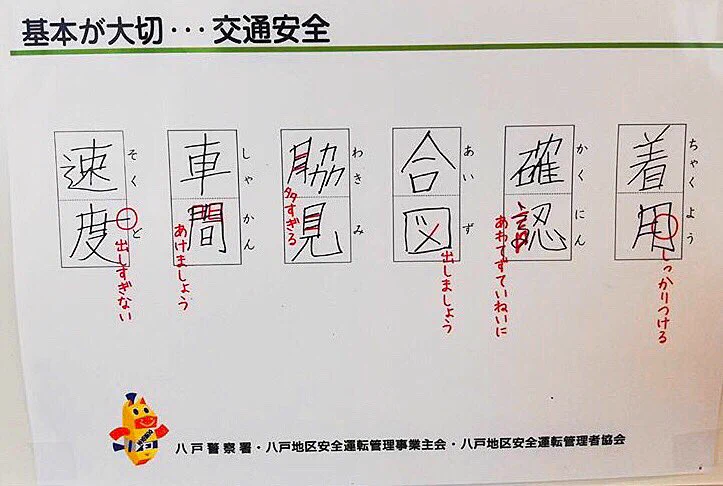 基本が大切･･･交通安全
着用
ちゃくよう
しっかりつける
確認
かくにん
あわてずていねいに
合図
あいず
出しましょう
脇見
わきみ
多すぎる
車間
しゃかん
あけましょう
速度
そくど
出しすぎない
八戸警察署・八戸地区安全運転管理事業主会・八戸地区安全運転管理者協会